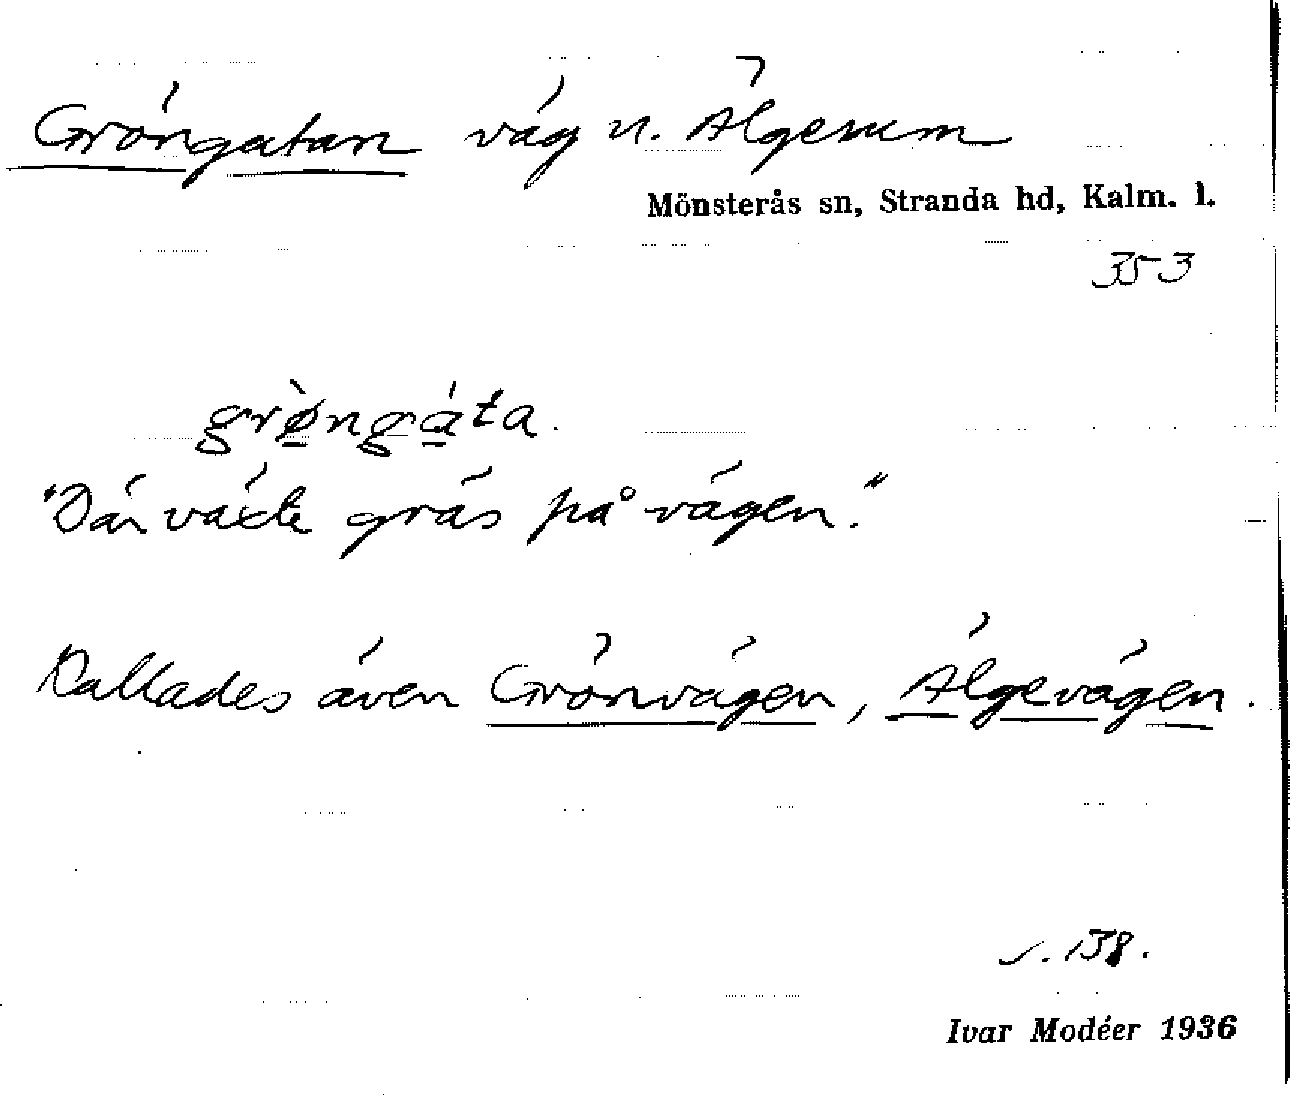 Gröngatan väg n. Älgerum
Mönsterås sn, Stranda hd, Kalm. l.
353
grø̀ngáta.
"Där växte gräs på vägen."
Kallades även Grönvägen, Älgevägen.
s. 138.
Ivar Modéer 1936